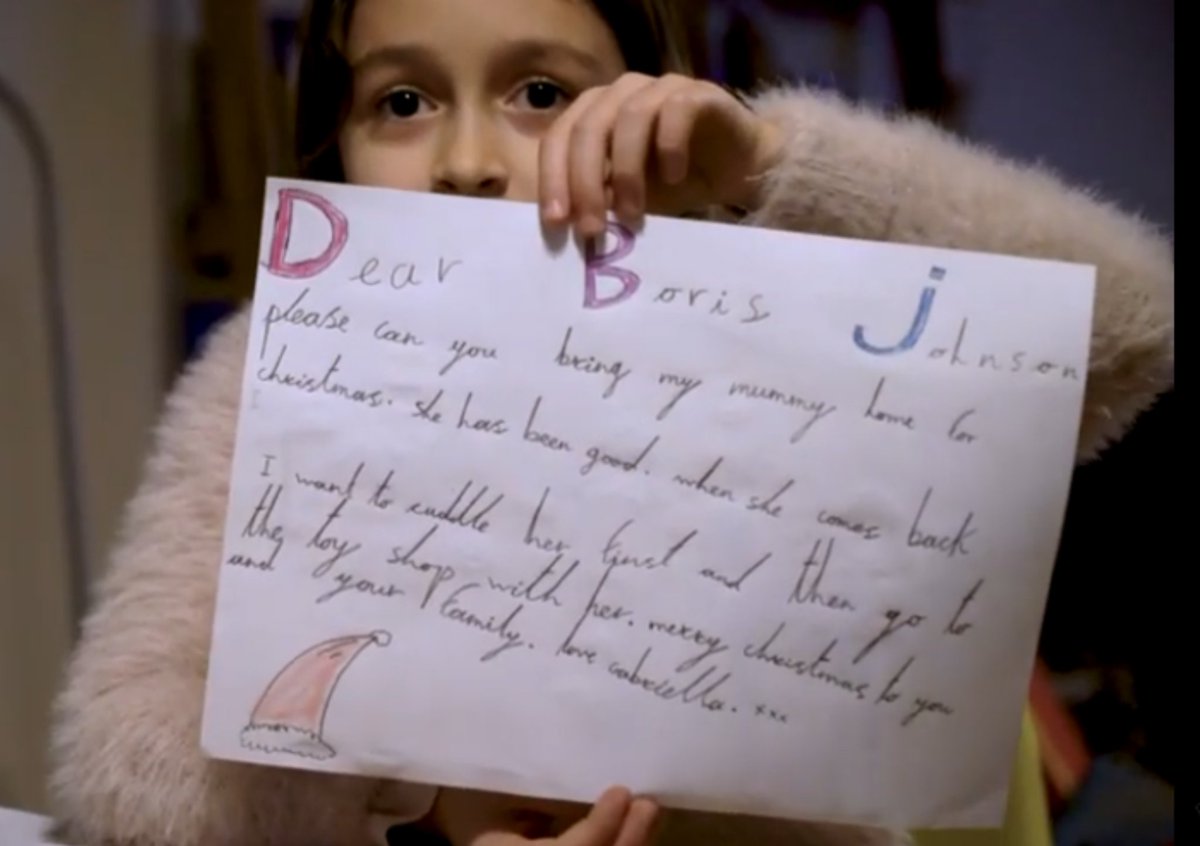 Dear Boris Johnson
please can you bring my mummy home for
christmas. she has been good. when she comes back
I want to cuddle her first and then go to
the toy shop with her. merry christmas to you
and your family. love Gabriella. xxx